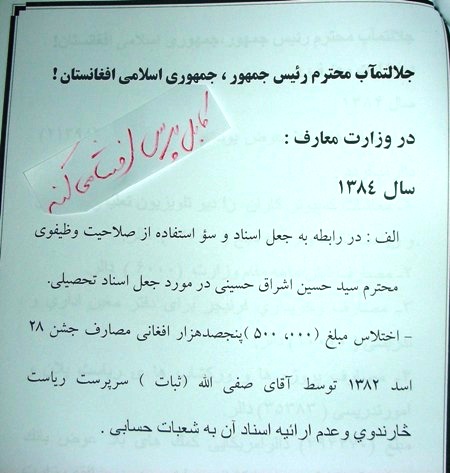 جلالتمآب محترم رئیس جمهور ، جمهوری اسلامی افغانستان !
در وزارت معارف :
کابل پرس افشا می کند
سال ١٣٨٤
الف : در رابطه به جعل اسناد و سؤ استفاده از صلاحیت وظیفوی
محترم سید حسین اشراق حسینی در مورد جعل اسناد تحصیلی.
- اختلاس مبلغ (٥٠٠،٠٠٠) پنجصدهزار افغانی مصارف جشن ٢٨
اسد ١٣٨٢ توسط آقای صفی الله (ثبات ) سرپرست ریاست
څارندوي وعدم ارائیه اسناد آن به شعبات حسابی .